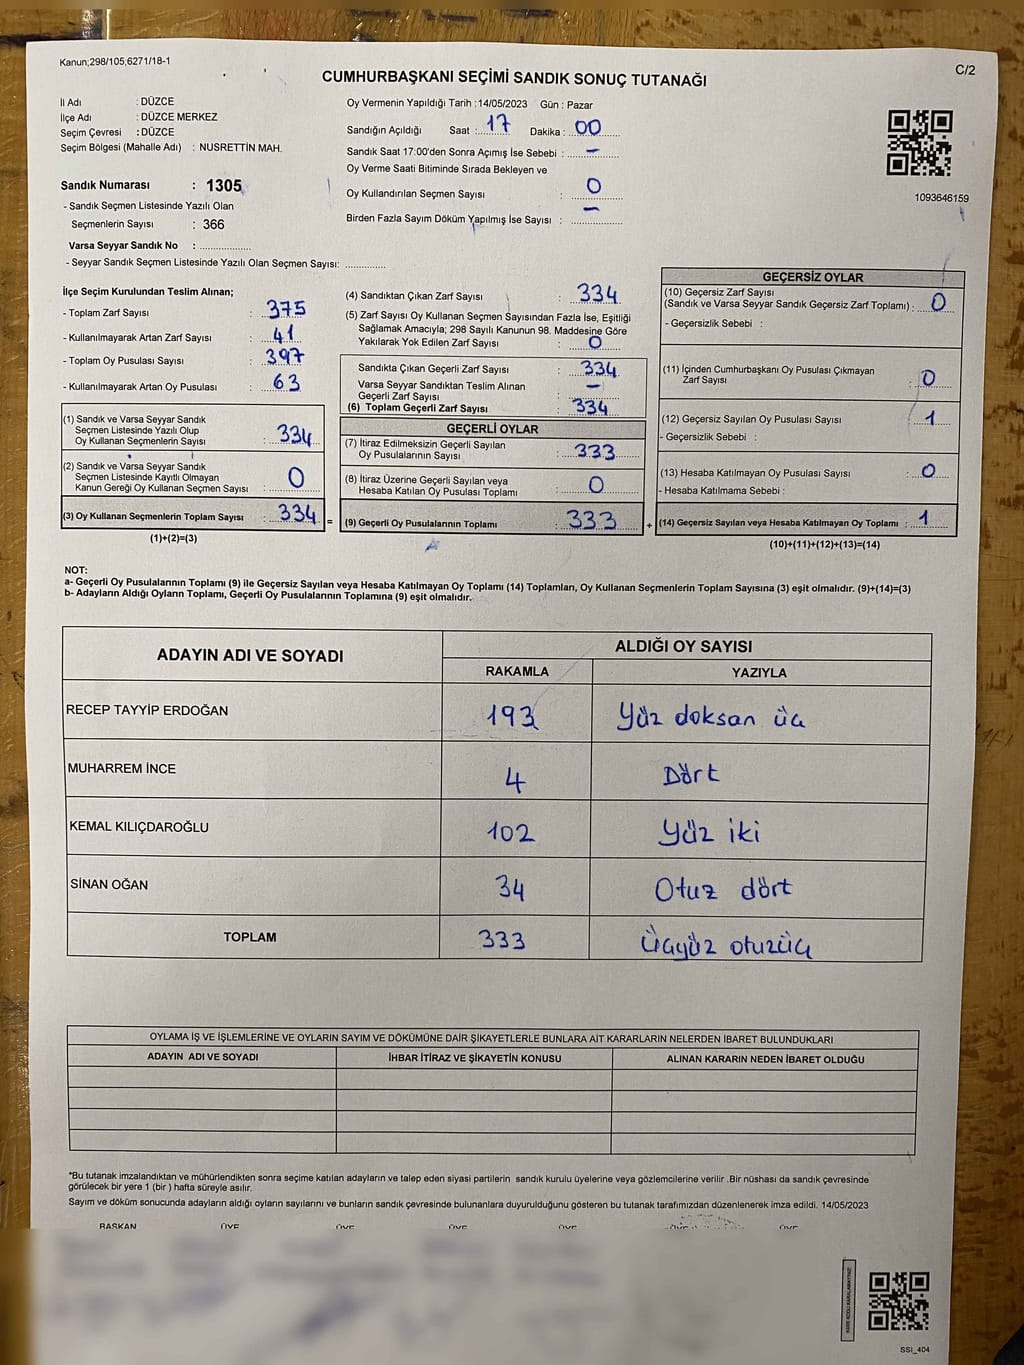 Kanun;298/105;6271/18-1
C/2
CUMHURBAŞKANI SEÇİMİ SANDIK SONUÇ TUTANAĞI
İl Adı : DÜZCE
İlçe Adı : DÜZCE MERKEZ
Seçim Çevresi : DÜZCE
Seçim Bölgesi (Mahalle Adı) : NUSRETTİN MAH.
Sandık Numarası : 1305
- Sandık Seçmen Listesinde Yazılı Olan
Seçmenlerin Sayısı : 366
Varsa Seyyar Sandık No : ....................
- Seyyar Sandık Seçmen Listesinde Yazılı Olan Seçmen Sayısı: ...............
Oy Vermenin Yapıldığı Tarih : 14/05/2023 Gün : Pazar
Sandığın Açıldığı Saat : 17 Dakika : 00
Sandık Saat 17:00'den Sonra Açımış İse Sebebi : -
Oy Verme Saati Bitiminde Sırada Bekleyen ve
Oy Kullandırılan Seçmen Sayısı : 0
Birden Fazla Sayım Döküm Yapılmış İse Sayısı : -
1093646159
İlçe Seçim Kurulundan Teslim Alınan;
- Toplam Zarf Sayısı : 375
- Kullanılmayarak Artan Zarf Sayısı : 41
- Toplam Oy Pusulası Sayısı : 397
- Kullanılmayarak Artan Oy Pusulası : 63
(1) Sandık ve Varsa Seyyar Sandık
Seçmen Listesinde Yazılı Olup
Oy Kullanan Seçmenlerin Sayısı : 334
(2) Sandık ve Varsa Seyyar Sandık
Seçmen Listesinde Kayıtlı Olmayan
Kanun Gereği Oy Kullanan Seçmen Sayısı : 0
(3) Oy Kullanan Seçmenlerin Toplam Sayısı : 334 =
(1)+(2)=(3)
(4) Sandıktan Çıkan Zarf Sayısı : 334
(5) Zarf Sayısı Oy Kullanan Seçmen Sayısından Fazla İse, Eşitliği
Sağlamak Amacıyla; 298 Sayılı Kanunun 98. Maddesine Göre
Yakılarak Yok Edilen Zarf Sayısı : 0
Sandıkta Çıkan Geçerli Zarf Sayısı : 334
Varsa Seyyar Sandıktan Teslim Alınan
Geçerli Zarf Sayısı : -
(6) Toplam Geçerli Zarf Sayısı : 334
GEÇERLİ OYLAR
(7) İtiraz Edilmeksizin Geçerli Sayılan
Oy Pusulalarının Sayısı : 333
(8) İtiraz Üzerine Geçerli Sayılan veya
Hesaba Katılan Oy Pusulası Toplamı : 0
(9) Geçerli Oy Pusulalarının Toplamı : 333 +
GEÇERSİZ OYLAR
(10) Geçersiz Zarf Sayısı
(Sandık ve Varsa Seyyar Sandık Geçersiz Zarf Toplamı) : 0
- Geçersizlik Sebebi :
(11) İçinden Cumhurbaşkanı Oy Pusulası Çıkmayan
Zarf Sayısı : 0
(12) Geçersiz Sayılan Oy Pusulası Sayısı : 1
- Geçersizlik Sebebi :
(13) Hesaba Katılmayan Oy Pusulası Sayısı : 0
- Hesaba Katılmama Sebebi :
(14) Geçersiz Sayılan veya Hesaba Katılmayan Oy Toplamı : 1
(10)+(11)+(12)+(13)=(14)
NOT:
a- Geçerli Oy Pusulalarının Toplamı (9) ile Geçersiz Sayılan veya Hesaba Katılmayan Oy Toplamı (14) Toplamları, Oy Kullanan Seçmenlerin Toplam Sayısına (3) eşit olmalıdır. (9)+(14)=(3)
b- Adayların Aldığı Oyların Toplamı, Geçerli Oy Pusulalarının Toplamına (9) eşit olmalıdır.
ADAYIN ADI VE SOYADI ALDIĞI OY SAYISI
RAKAMLA YAZIYLA
RECEP TAYYİP ERDOĞAN 193 Yüz doksan üç
MUHARREM İNCE 4 Dört
KEMAL KILIÇDAROĞLU 102 Yüz iki
SİNAN OĞAN 34 Otuz dört
TOPLAM 333 Üçyüz otuzüç
OYLAMA İŞ VE İŞLEMLERİNE VE OYLARIN SAYIM VE DÖKÜMÜNE DAİR ŞİKAYETLERLE BUNLARA AİT KARARLARIN NELERDEN İBARET BULUNDUKLARI
ADAYIN ADI VE SOYADI İHBAR İTİRAZ VE ŞİKAYETİN KONUSU ALINAN KARARIN NEDEN İBARET OLDUĞU
*Bu tutanak imzalandıktan ve mühürlendikten sonra seçime katılan adayların ve talep eden siyasi partilerin sandık kurulu üyelerine veya gözlemcilerine verilir .Bir nüshası da sandık çevresinde
görülecek bir yere 1 (bir ) hafta süreyle asılır.
Sayım ve döküm sonucunda adayların aldığı oyların sayılarını ve bunların sandık çevresinde bulunanlara duyurulduğunu gösteren bu tutanak tarafımızdan düzenlenerek imza edildi. 14/05/2023
BAŞKAN ÜYE ÜYE ÜYE ÜYE ÜYE ÜYE
SSI_404